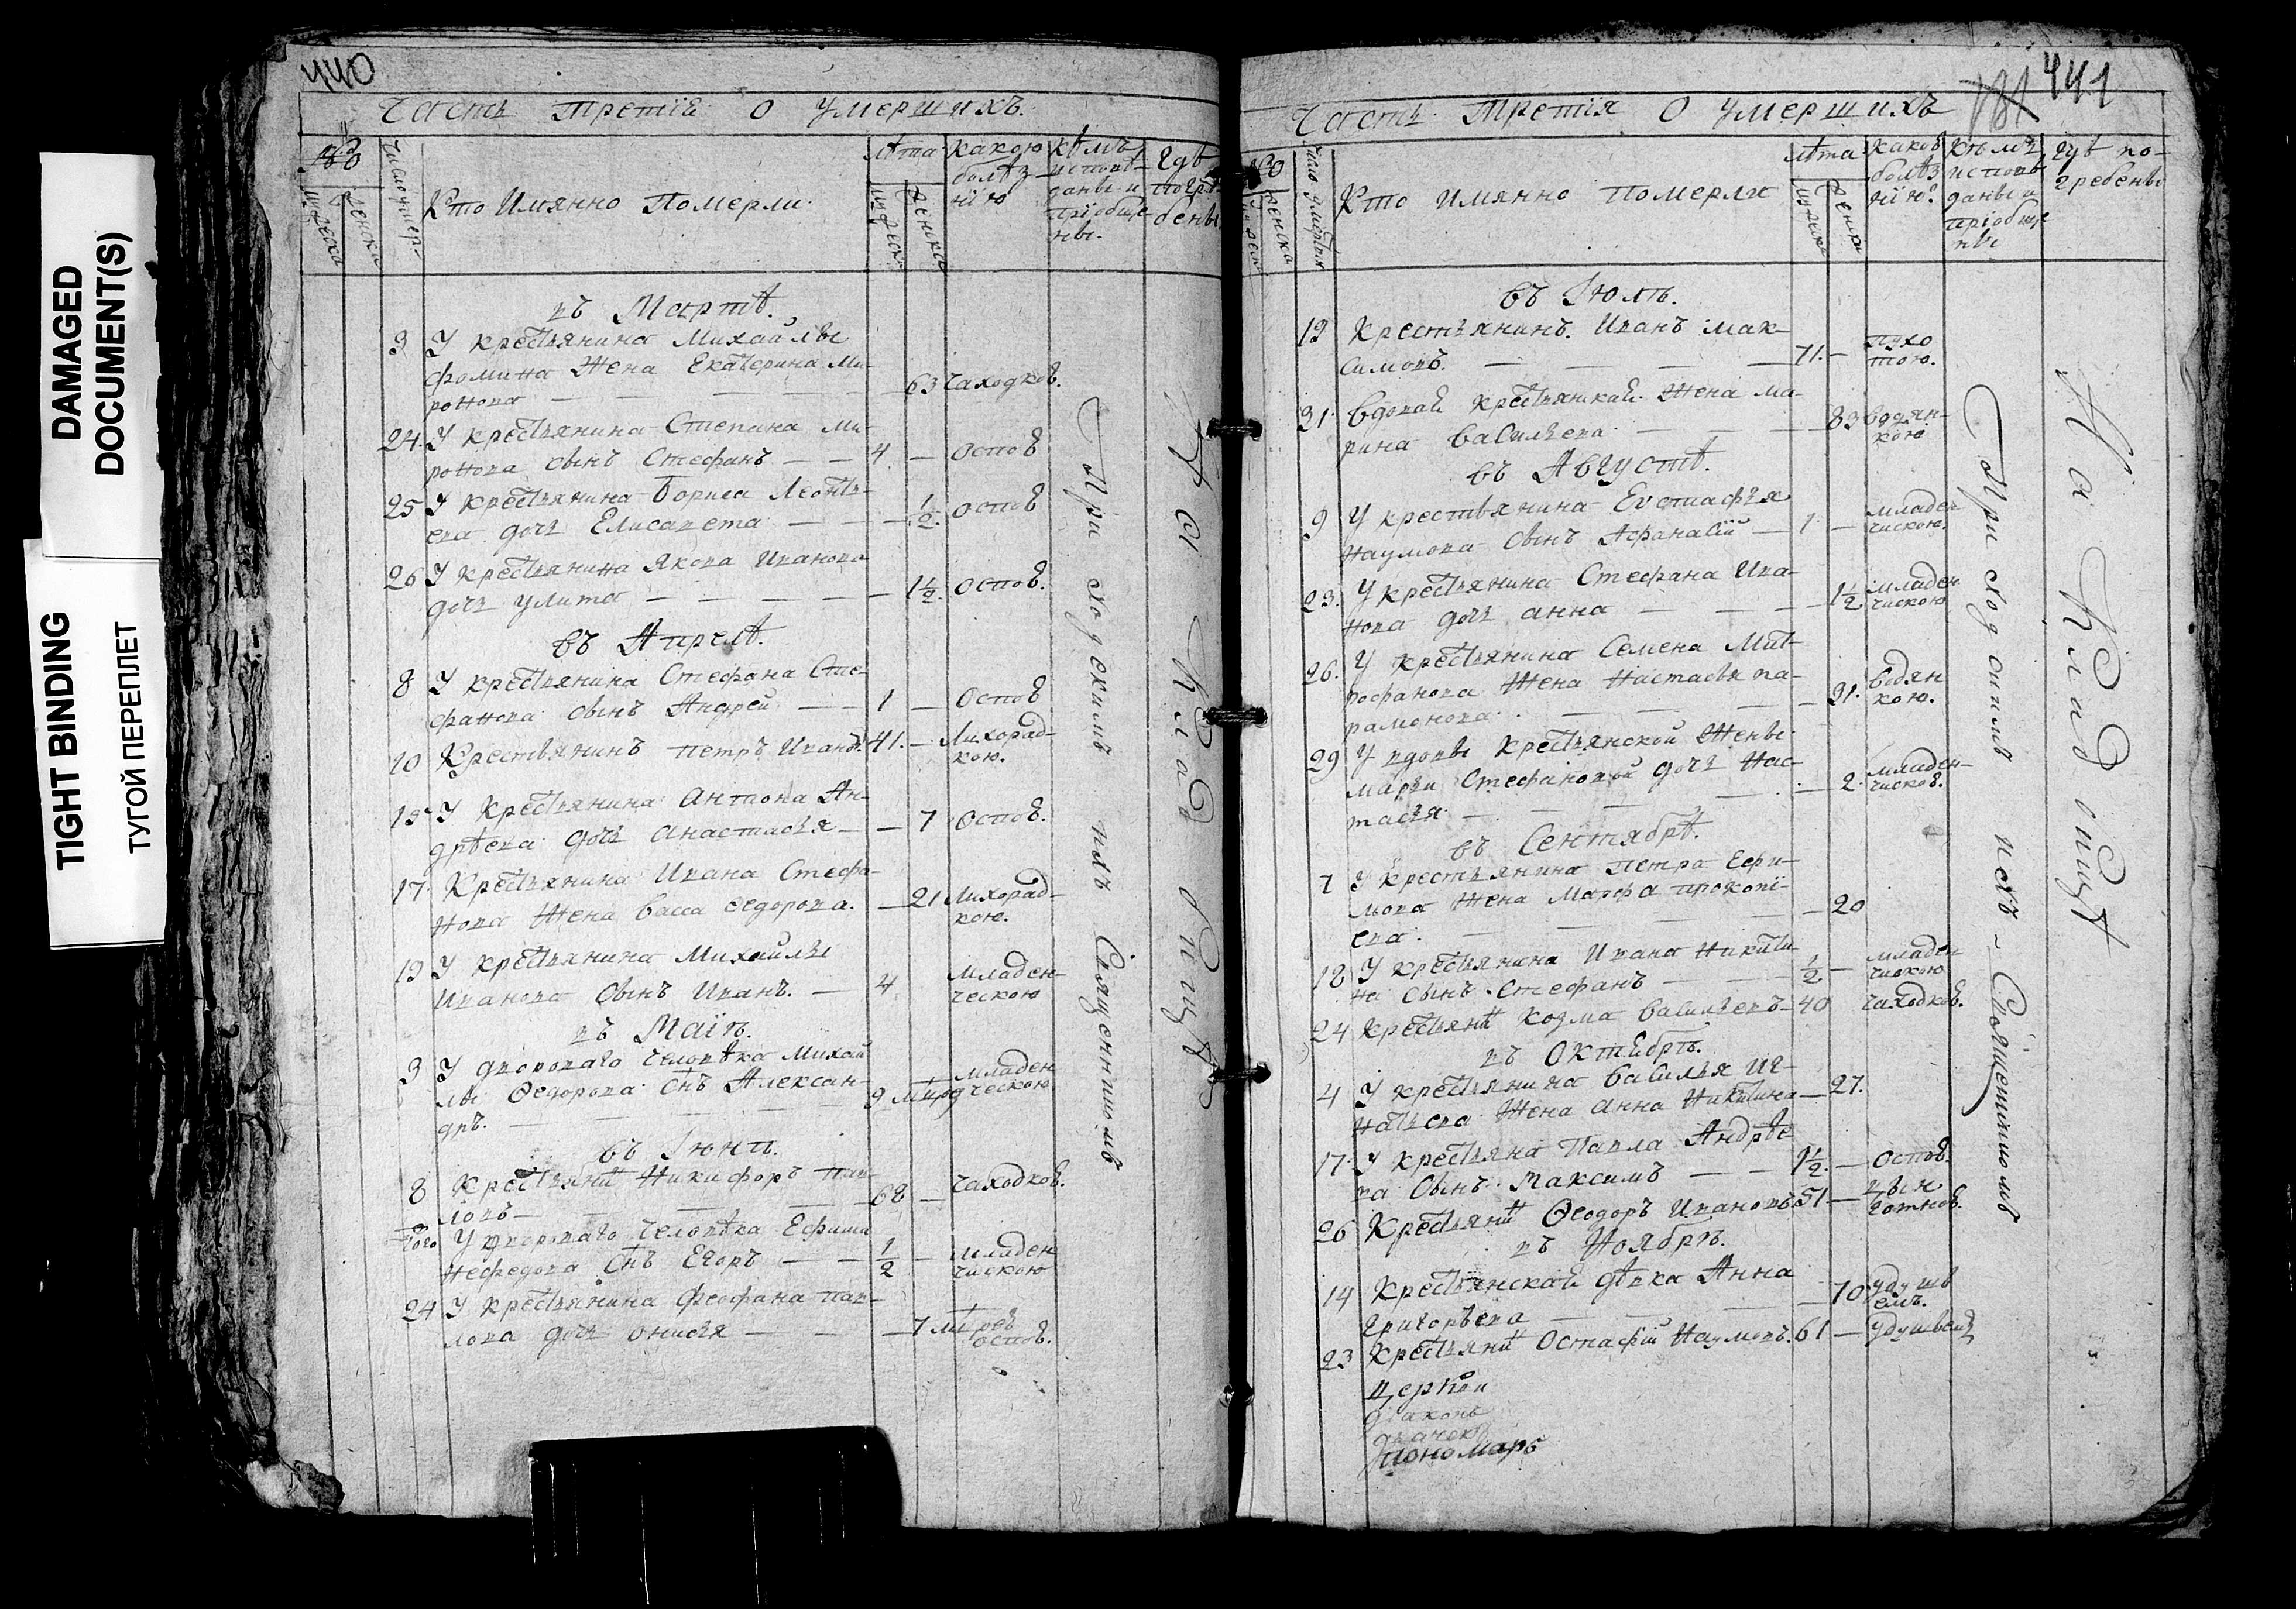 DAMAGED
DOCUMENT(S)
TIGHT BINDING
ТУГОЙ ПЕРЕПЛЕТ
440
Часть третiя о умершихъ.
число умер-
мужеска
женска
Кто Имянно Померли.
лѣта
мужеск
женска
какою
болѣз-
нїю
кѣмъ
исповѣ-
даны и
прїобще
ны.
гдѣ
погре-
бены.
въ Мартѣ.
3 У крестьянина Михайлы
Фомина Жена Екатерина Ми-
ронова — 63 чахоткою.
24 У крестьянина Степана Ми-
ронова сынъ Стефанъ — 4. — оспой
25 У крестьянина Бориса Леонть-
ева дочь Елисавета — 1/2. оспой
26 У крестьянина Якова Иванова
дочь улита — 1 1/2. оспой.
въ Апрелѣ.
8 У крестьянина Стефана Сте-
фанова сынъ Андрей — 1 — Оспой
10 Крестьянинъ петръ Иванов. 41. — Лихорад-
кою.
15 У Крестьянина Антона Ан-
дрѣева дочь анастасья — 7 Оспой.
17. Крестьянина Ивана Стефа-
нова Жена васса Ѳедорова. — 21 Лихорад-
кою.
19 У крестьянина Михайлы
Иванова Сынъ Иванъ. — 4 младен-
ческою
въ Маїѣ.
3 У двороваго человѣка Михай
лы Ѳедорова Снъ Алексан-
дръ. — 9 младен
ческою
въ Iюнѣ.
8 Крестьянинъ Никифоръ пав-
ловъ — 68 — чахоткою.
У двороваго человѣка Ефима
Нефедова Снъ Егоръ — 1/2 — младен
чискою
24 У крестьянина Феофана пав-
лова дочь онисья — 7 оспой.
При ходскимъ ихъ Священникомъ
На Кладбищѣ
441
Часть Третiя О Умершихъ
число умертвiя
женска
Кто имянно померли
лѣта
мужска
женска
какою
болѣз
нїю?
Кѣмъ
исповѣ
даны и
прїобще
ны
гдѣ по-
гребены
въ Iюлѣ.
19 Крестьянинъ. Иванъ мак-
симовъ. — 71. — пухо
тою.
31. вдовай крестьянкай. Жена ма-
рина васильева — 83 водян-
кою
въ Августѣ.
9 У крестьянина Евстафья
Наумова Сынъ Афанасiй — 1 — младен
чискою.
23. У крестьянина Стефана Ива-
нова дочь анна — 1 1/2 младен
чискою
26. У крестьянина Семена Мит-
рофанова Жена Настасья па-
рамонова. — 31. водян
кою.
29 У вдовы крестьянской Жены.
марьи Стефановой дочь Нас-
тасья. — 2. младен-
чиской.
въ Сентябрѣ.
7 У крестьянина петра Ефи-
мова Жена Марфа прокопї-
ева. — 20
18 У крестьянина Ивана Никити-
на Сынъ Стефанъ — 1/2 — младен
чискою
24 Крестьянинъ козма васильевъ — 40 чахоткой.
въ Октябрѣ.
4 У крестьянина василья Иг-
натьева Жена анна Никитина — 27.
17. У крестьяна Павла Андрѣе
ва Сынъ. Максимъ — 1 1/2. — оспой.
26 Крестьянинъ Ѳеодоръ Ивановъ 51 — цын
готной.
въ Ноябрѣ.
14 Крестьянская дѣвка Анна
григорьева — 70 удушь
емъ.
23 Крестьянинъ Остафiй Наумовъ. 61 — удушьемъ
При ходскимъ ихъ — Священникомъ
На Кладбищѣ
Церкви
дiаконъ
дьячекъ
Пономарь